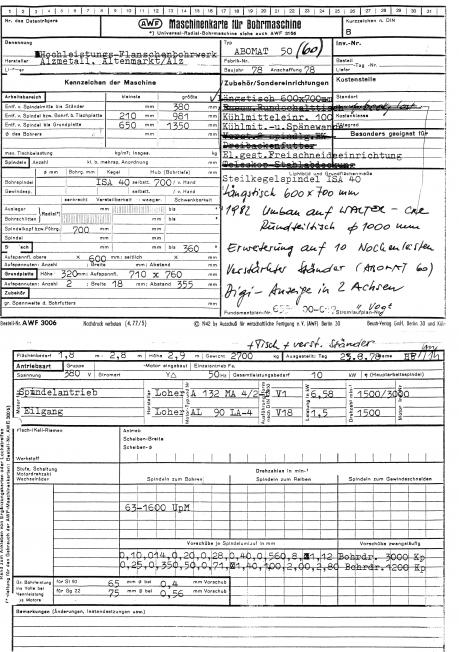 1 2 3 4 5 6 7 8 9 10 11 12 13 14 15 16 17 18 19 20 21 22 23 24 25 26 27 28 29 30 31
Nr. des Datenträgers
AWF Maschinenkarte für Bohrmaschine
*) Universal-Radial-Bohrmaschine siehe auch AWF 3156
Kurzzeichen n. DIN
B
Benennung
Hochleistungs-Flanschenbohrwerk
Alzmetall, Altenmarkt/Alz
Typ
ABOMAT 50 (60)
Inv.-Nr.
Fabrik-Nr.
Bestell
Baujahr 78 Anschaffung 78
Liefer -Tag -Nr.
Kennzeichen der Maschine
Zubehör/Sondereinrichtungen
Kostenstelle
Arbeitsbereich kleinste größte
Längstisch 600x700mm
Standort
Entf. v. Spindelmitte bis Ständer mm 380 mm
Entf. v. Spindel bzw. Bohrft. b. Tischplatte 210 mm 981 mm
Kühlmitteleinr. 100
Kostenklasse
Entf. v. Spindel bis Grundplatte 650 mm 1350 mm
Kühlmit.-u.Spänewanne
ø des Bohrers mm mm
Besonders geeignet für
Dreibackenfutter
max. Tischbelastung kg/m²; insges. kg
El.gest.Freischneideeinrichtung
Spindeln Anzahl kl. b. mehrsp. Anordnung
Teleskop-Stahlabdeckung
ø Bohrg. mm Kegel Hub (Bohrtiefe) mm
Steilkegelspindel ISA 40
Bohrspindel ISA 40 selbst. 700 v. Hand
Längstisch 600 x 700 mm
Gewindesp. selbst. v. Hand
senkrecht Verstellbarkeit waager. Schwenkbarkeit
1982 Umbau auf WALTER - CNC
Ausleger Radial*) mm
Rundteiltisch ϕ 1000 mm
Bohrschlitten mm
Spindelkopf bzw. Führg. 700 mm
Erweiterung auf 10 Nockenleisten
Spindel mm
Tisch mm mm bis 360 °
Verstärkter Ständer (ABOMAT 60)
Aufspannfl. oben 600 mm seitlich mm
Aufspannuten: Anzahl Breite mm Abstand mm
Digi-Anzeige in 2 Achsen
Grundplatte Höhe 320 mm Aufspannfl. 710 x 760 mm
Aufspannuten: Anzahl 2 Breite 18 mm Abstand 355 mm
Zubehör
gr. Spannweite d. Bohrfutters mm
Fundamentplan-Nr. Stromlaufplan-Nr.
Bestell-Nr. AWF 3006 Nachdruck verboten (4.77/5) © 1942 by Ausschuß für wirtschaftliche Fertigung e. V. (AWF) Berlin 30 Beuth-Vertrieb GmbH, Berlin 30 und Köln
+ Tisch + verst. Ständer
Flächenbedarf 1,8 m · 2,8 m Höhe 2,9 m Gewicht 2700 kg Ausgestellt: Tag 23.8.78 Name
Antriebsart Gruppe -Motor eingebaut Einzelantrieb Fa.
Spannung 380 V Stromart YΔ 50 Hz Gesamtleistungsbedarf 10 kW (Hauptarbeitsspindel)
Spindelantrieb Loher A 132 MA 4/2 V1 6,58 1500/3000
Eilgang Loher AL 90 LA-4 V18 1,5 1500
Flach-/Keil-Riemen Antrieb
Scheiben-Breite
Scheiben-ø
Werkstoff
Stufe, Schaltung
Motordrehzahl
Wechselräder
Drehzahlen in min-¹
Spindeln zum Bohren Spindeln zum Reiben Spindeln zum Gewindeschneiden
63-1600 UpM
Vorschübe je Spindelumlauf in mm Vorschübe zwangsläufig
0,10,014,0,20,0,28,0,40,0,560,8,1,12 Bohrdr. 3000 Kp
0,25,0,350,50,0,71,1,40,100,2,00,2,80 Bohrdr. 1200 Kp
Gr. Bohrleistung ins Volle bei Nennleistung je Motore
für St 60 65 mm Ø bei 0,4 mm Vorschub
für Gg 22 75 mm Ø bei 0,56 mm Vorschub
Bemerkungen (Änderungen, Instandsetzungen usw.)